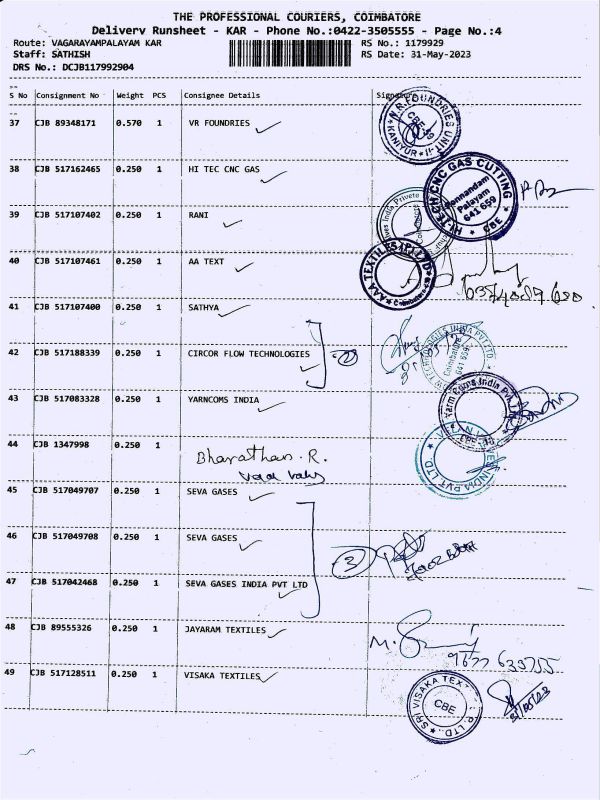 THE PROFESSIONAL COURIERS, COIMBATORE
Delivery Runsheet - KAR - Phone No.:0422-3505555 - Page No.:4
Route: VAGARAYAMPALAYAM KAR RS No.: 1179929
Staff: SATHISH RS Date: 31-May-2023
DRS No.: DCJB117992904
S No Consignment No Weight PCS Consignee Details
37 CJB 89348171 0.570 1 VR FOUNDRIES
38 CJB 517162465 0.250 1 HI TEC CNC GAS
HI-TECH CNC GAS CUTTING
Palayam
641 659
CBE
39 CJB 517107402 0.250 1 RANI
40 CJB 517107461 0.250 1 AA TEXT
AAA TEXTILES (P) LTD
Coimbatore
41 CJB 517107400 0.250 1 SATHYA
42 CJB 517188339 0.250 1 CIRCOR FLOW TECHNOLOGIES
Coimbatore
641 659
43 CJB 517083328 0.250 1 YARNCOMS INDIA
Yarn Coms India Pvt
44 CJB 1347998 0.250 1
Bharathan. R.
INDIA PVT. LTD.
45 CJB 517049707 0.250 1 SEVA GASES
46 CJB 517049708 0.250 1 SEVA GASES
3
47 CJB 517042468 0.250 1 SEVA GASES INDIA PVT LTD
48 CJB 89555326 0.250 1 JAYARAM TEXTILES
49 CJB 517128511 0.250 1 VISAKA TEXTILES
SRI VISAKA TEX
CBE